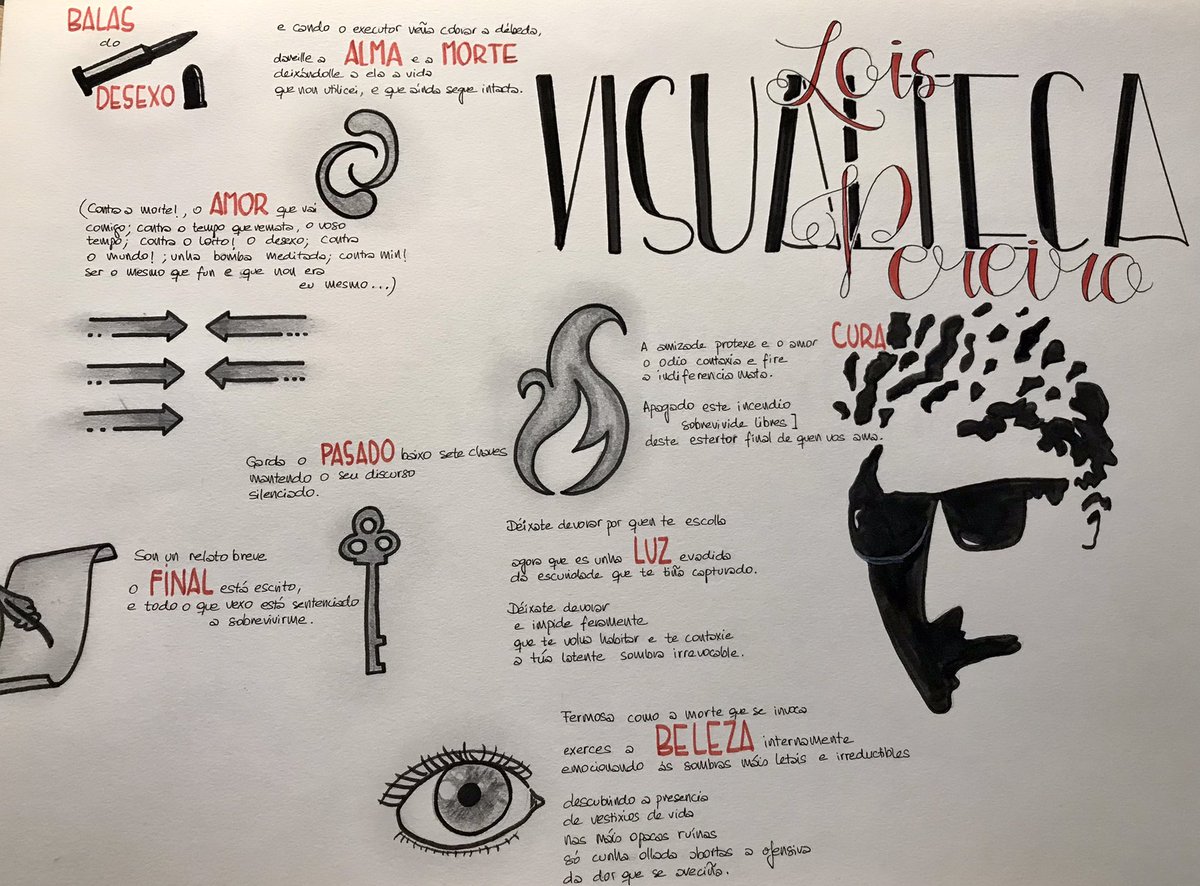 VISUALTECA
Lois
Pereiro
BALAS
do
DESEXO
e cando o executor veña cobrar a débeda,
dareille a ALMA e a MORTE
deixándolle a ela a vida
que non utilicei, e que aínda segue intacta.
(Contra a morte!, o AMOR que vai
comigo; contra o tempo que remata, o voso
tempo; contra o loito! o desexo; contra
o mundo!; unha bomba meditada; contra min!
ser o mesmo que fun e que non era
eu mesmo...)
A amizade protexe e o amor CURA
o odio contaxia e fire
a indiferencia mata.
Apagado este incendio
sobrevivide libres]
deste estertor final de quen vos ama.
Garda o PASADO baixo sete chaves
mantendo o seu discurso
silenciado.
Son un relato breve
o FINAL está escrito,
e todo o que vexo está sentenciado
a sobrevivirme.
Déixate devorar por quen te escolla
agora que es unha LUZ evadida
da escuridade que te tiña capturado.
Déixate devorar
e impide feramente
que te volva habitar e te contaxie
a túa latente sombra irrevocable.
Fermosa como a morte que se invoca
exerces a BELEZA internamente
emocionando ás sombras máis letais e irreductibles
descubrindo a presencia
de vestixios de vida
nas máis opacas ruínas
só cunha ollada abortas a ofensiva
da dor que se aveciña.